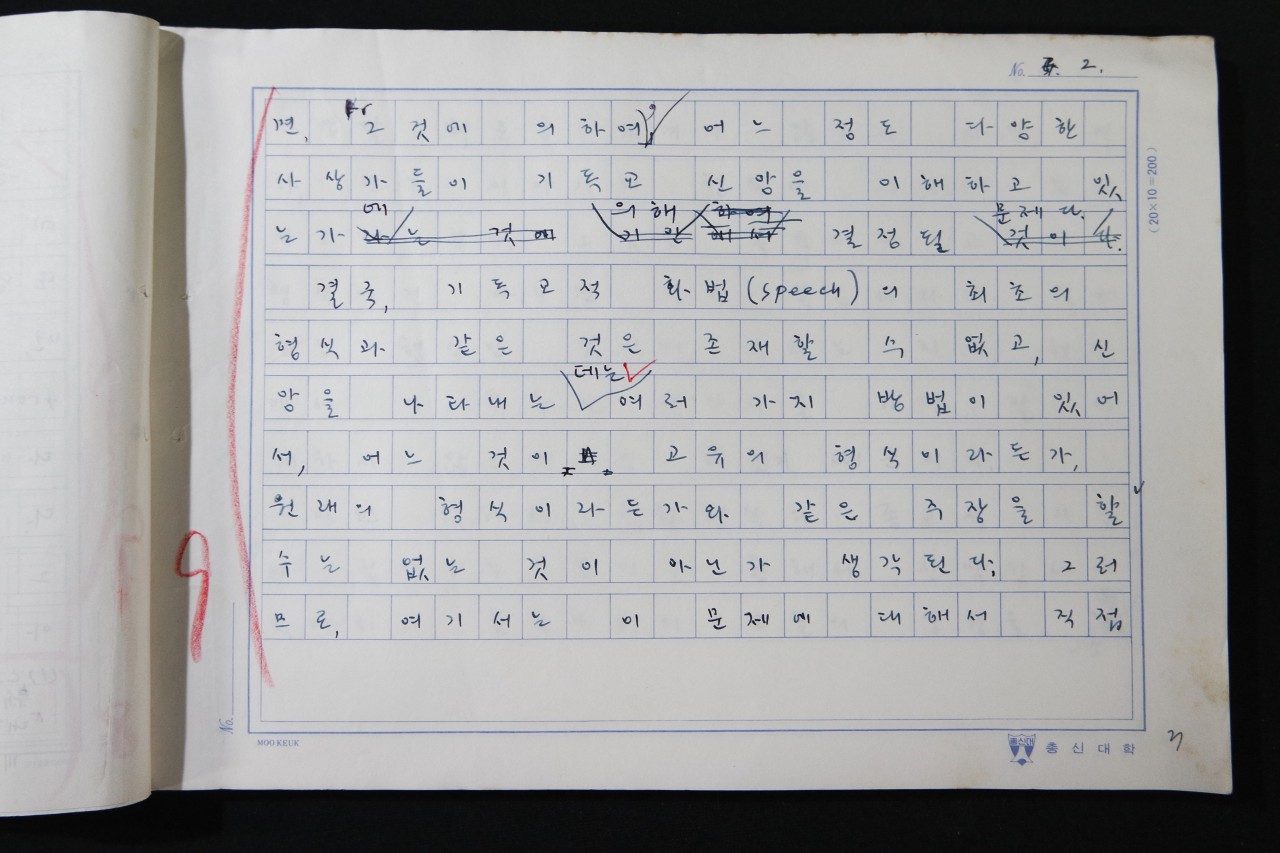 No. 2.
면, 그 것에 의하여, 어느 정도 다양한
사상가들이 기독교 신앙을 이해하고 있
에 의해 하여 문제다.
는가라는 것에 기인해서 결정될 것이다.
결국, 기독교적 화법(speech)의 최초의
형식과 같은 것은 존재할 수 없고, 신
데는
앙을 나타내는 여러 가지 방법이 있어
서, 어느 것이 고유의 형식이라든가,
원래의 형식이라든가와 같은 주장을 할
수는 없는 것이 아닌가 생각된다. 그러
므로, 여기서는 이 문제에 대해서 직접
(20×10=200)
No.
MOO KEUK
총신대 총신대학
9